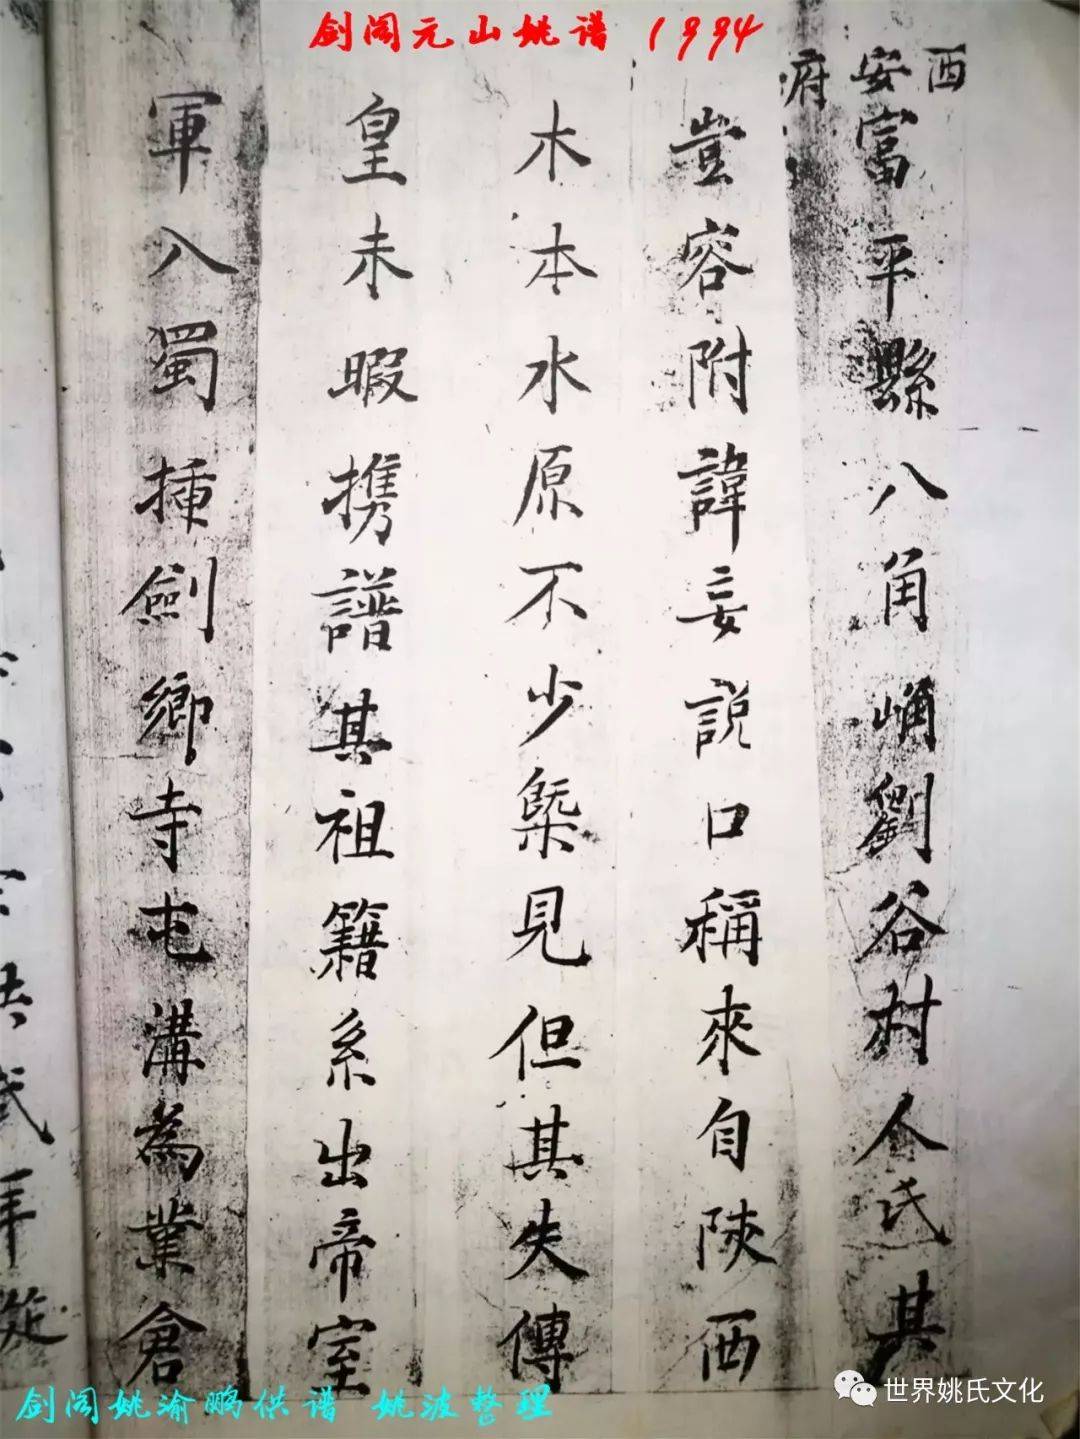 剑阁元山姚谱 1994
軍入蜀挿劍鄉寺屯溝為業倉
皇未暇携譜其祖籍系出帝室
木本水原不少槩見但其失傳
豈容附諱妄説口稱來自陝西
西安府
富平縣八角劉谷村人氏其
剑阁姚渝鹏供谱 姚波整理
世界姚氏文化